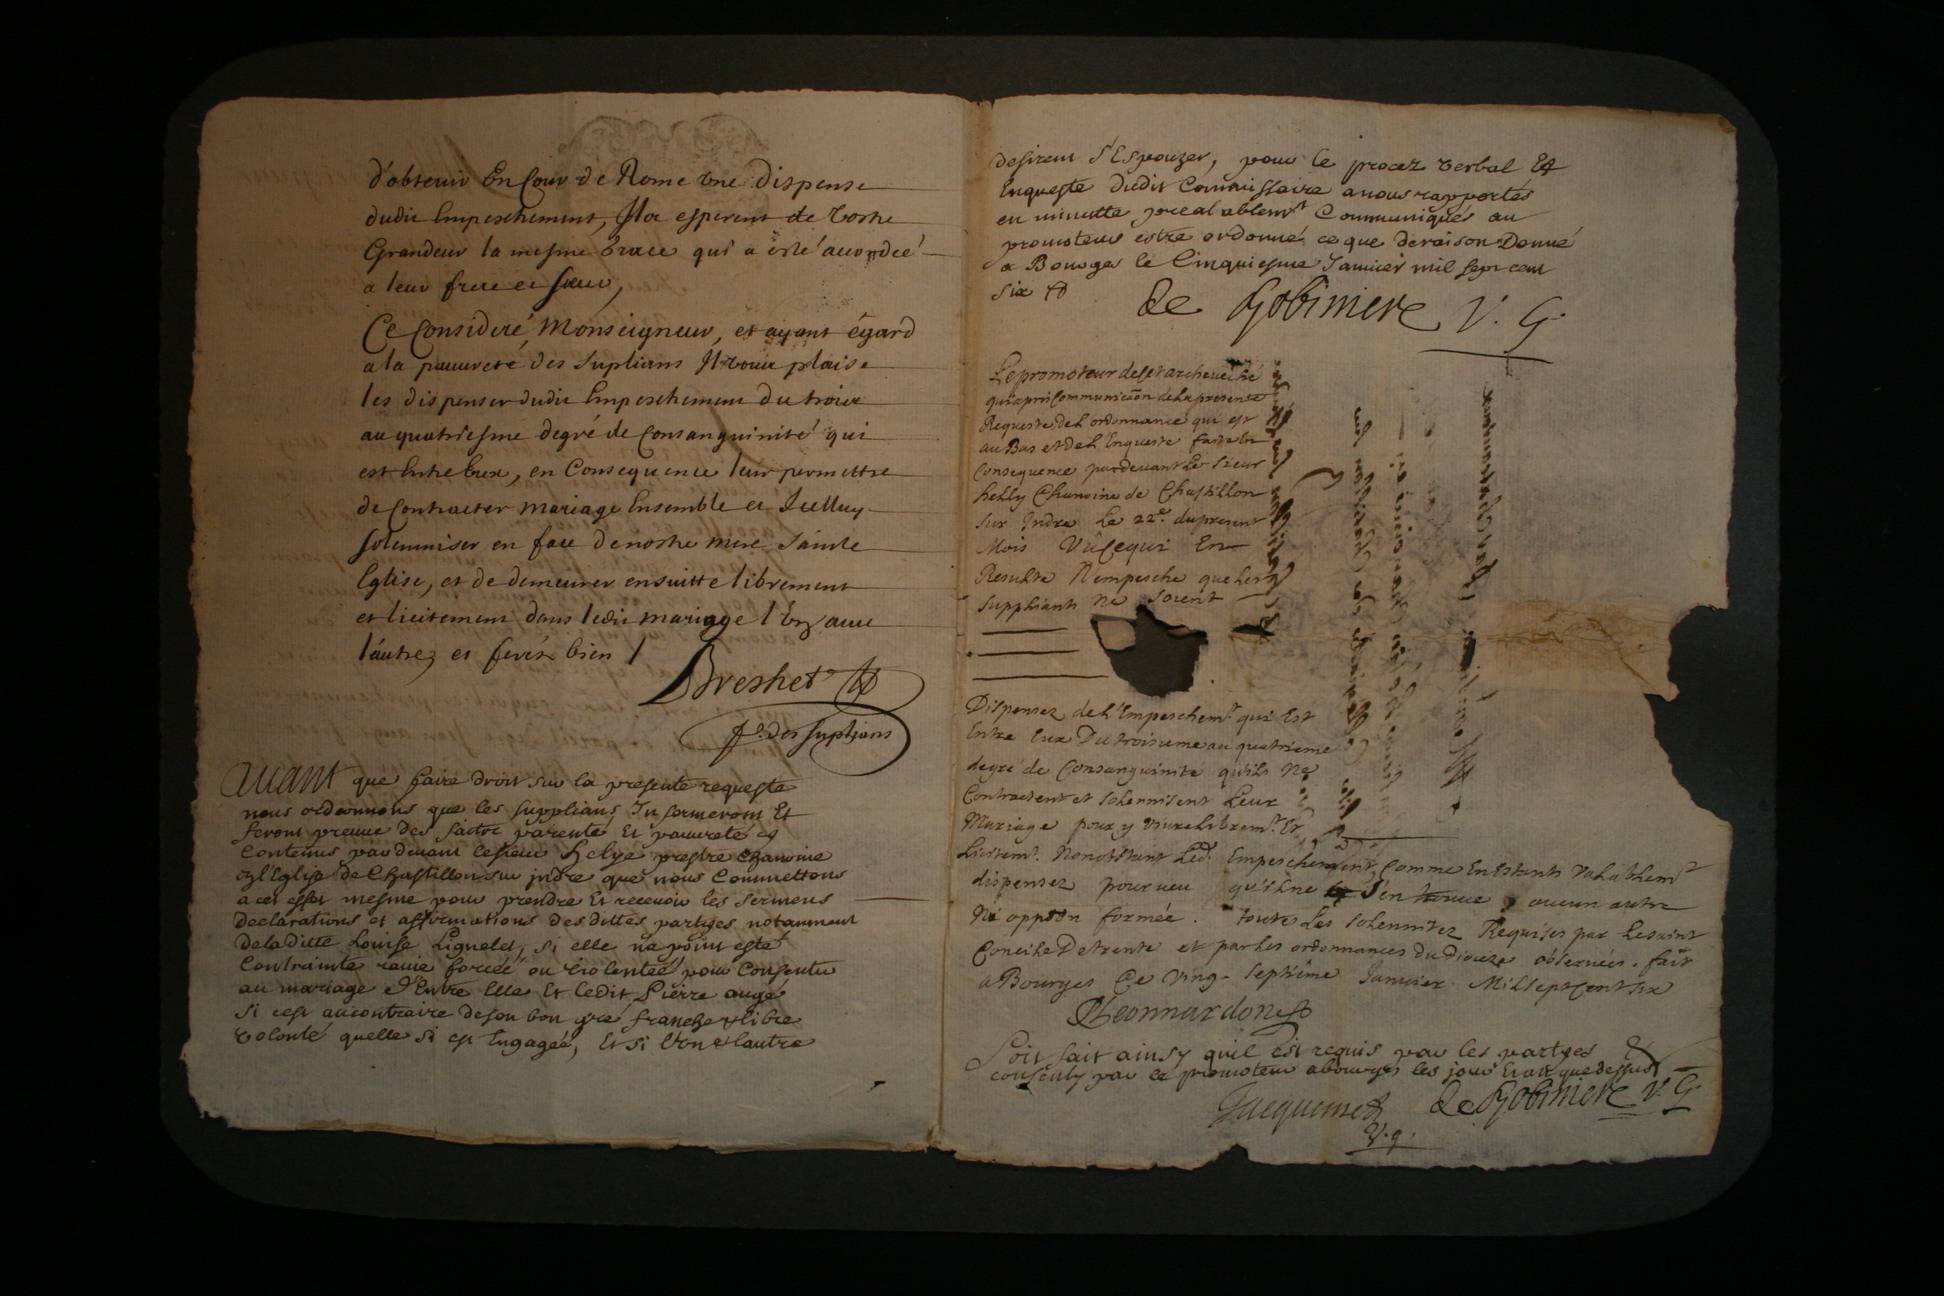 d'obtenir En Cour de Rome vne dispense
dudit Empeschement, Ilz esperent de vostre
Grandeur la mesme Grace qui a esté accordeé
a leur frere et sœur,
Ce Consideré, Monseigneur, et ayant égard
a la pauureté des suplians Il vous plaise
les dispenser dudit Empeschement du trois
au quatriesme degré de Consanguinité qui
est Entre Eux, en Consequence leur permettre
de Contracter mariage Ensemble et Icelluy
solemniser en face de nostre mere sainte
Eglise, et de demeurer ensuitte librement
et licitement dans ledit mariage l'vn auec
l'autre, et ferés bien /
Breshet
Pr. des suplians
Auant que faire droit sur la presente requeste
nous ordonnons que les supplians Informeront Et
feront preuue des faitz parenté Et pauureté
contenus pardeuant le sieur Helye prestre chanoine
de l'Eglise de Chastillon sur jndre que nous Commettons
a cet effet mesme pour prendre Et receuoir les sermens
declarations et affirmations desdittes partyes notamment
de la ditte Louise Lignelet, si elle n'a point esté
contrainte rauie forceé ou violenteé pour consentir
au mariage d'Entre Elle Et ledit Pierre augé
si c'est au contraire de son bon gré franche & libre
volonté quelle si est Engageé, Et si l'vn & lautre
desirent s'Espouzer, pour le procez verbal Et
Enqueste dudit Commissaire a nous rapportés
en minutte prealablemt Communiqués au
promoteur estre ordonné ce que de raison Donné
a Bourges le Cinquiesme Januier mil sept cent
six
De Gobiniere V. G.
Le promoteur de cet archeueché
qui a pris Communicãon de la presente
Requeste, de l'ordonnance qui est
au Bas et de L'Enqueste faite En
Consequence pardeuant Le Sieur
helly Chanoine de Chastillon
sur Endre Le 22e. du present
Mois Vû Ce qui En
Resulte N'empesche que Les
suppliants Ne soient
Dispensez de L'Empeschemt. qui Est
Entre Eux Du troisieme au quatrieme
degré de Consanguinité qu'ils Ne
Contractent et solennisent Leur
Mariage pour y Viure Libremt. Et
Licitemt. Nonobstant Led. Empeschement, Comme En Estants Valablemt
dispensez pourueu qu'il ne s'en trouue aucun autre
Ni oppõn formée. toutes Les solennitez Requises par Le saint
Concile De trente et par Les ordonnances du Dioceze obseruées. fait
a Bourges Ce Ving-septième Januier Mil sept Cent six
Leonnardon
Soit fait ainsy qu'il est requis par les partyes
consenty par le promoteur a bourges les jour Et an que dessus
Jacquemet De Gobiniere V. G.
V. g.